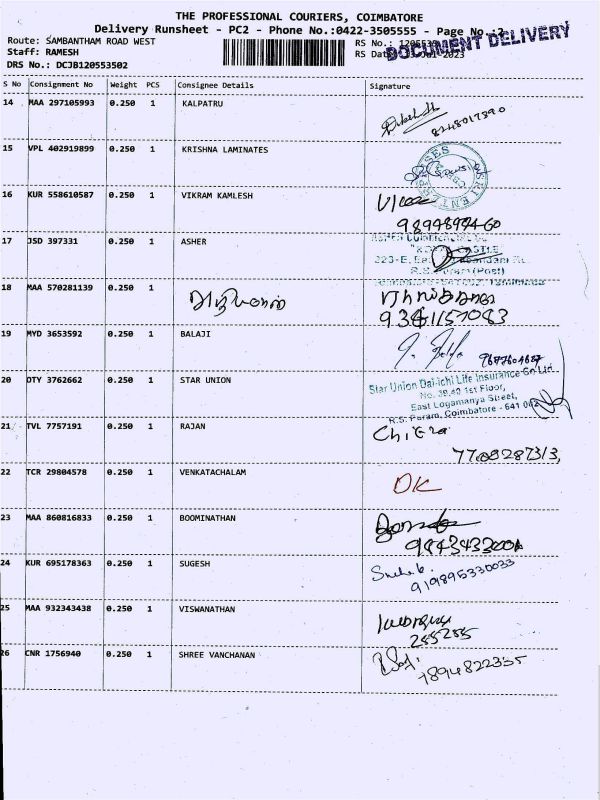 THE PROFESSIONAL COURIERS, COIMBATORE
Delivery Runsheet - PC2 - Phone No.:0422-3505555 - Page No.:2
DOCUMENT DELIVERY
Route: SAMBANTHAM ROAD WEST
RS No.:
Staff: RAMESH
RS Date
DRS No.: DCJB120553502
S No Consignment No Weight PCS Consignee Details Signature
14 MAA 297105993 0.250 1 KALPATRU
15 VPL 402919899 0.250 1 KRISHNA LAMINATES
16 KUR 558610587 0.250 1 VIKRAM KAMLESH
17 JSD 397331 0.250 1 ASHER
R.S. Puram (Post)
18 MAA 570281139 0.250 1
9341157083
19 MYD 3653592 0.250 1 BALAJI
9677604687
20 OTY 3762662 0.250 1 STAR UNION
Star Union Dai-ichi Life Insurance Co Ltd.
No. 39,40 1st Floor,
East Logamanya Street,
R.S. Puram, Coimbatore - 641 002
21 TVL 7757191 0.250 1 RAJAN
Chitra
7708287313,
22 TCR 29804578 0.250 1 VENKATACHALAM
OK
23 MAA 860816833 0.250 1 BOOMINATHAN
24 KUR 695178363 0.250 1 SUGESH
919895330033
25 MAA 932343438 0.250 1 VISWANATHAN
255255
26 CNR 1756940 0.250 1 SHREE VANCHANAN
7894822335